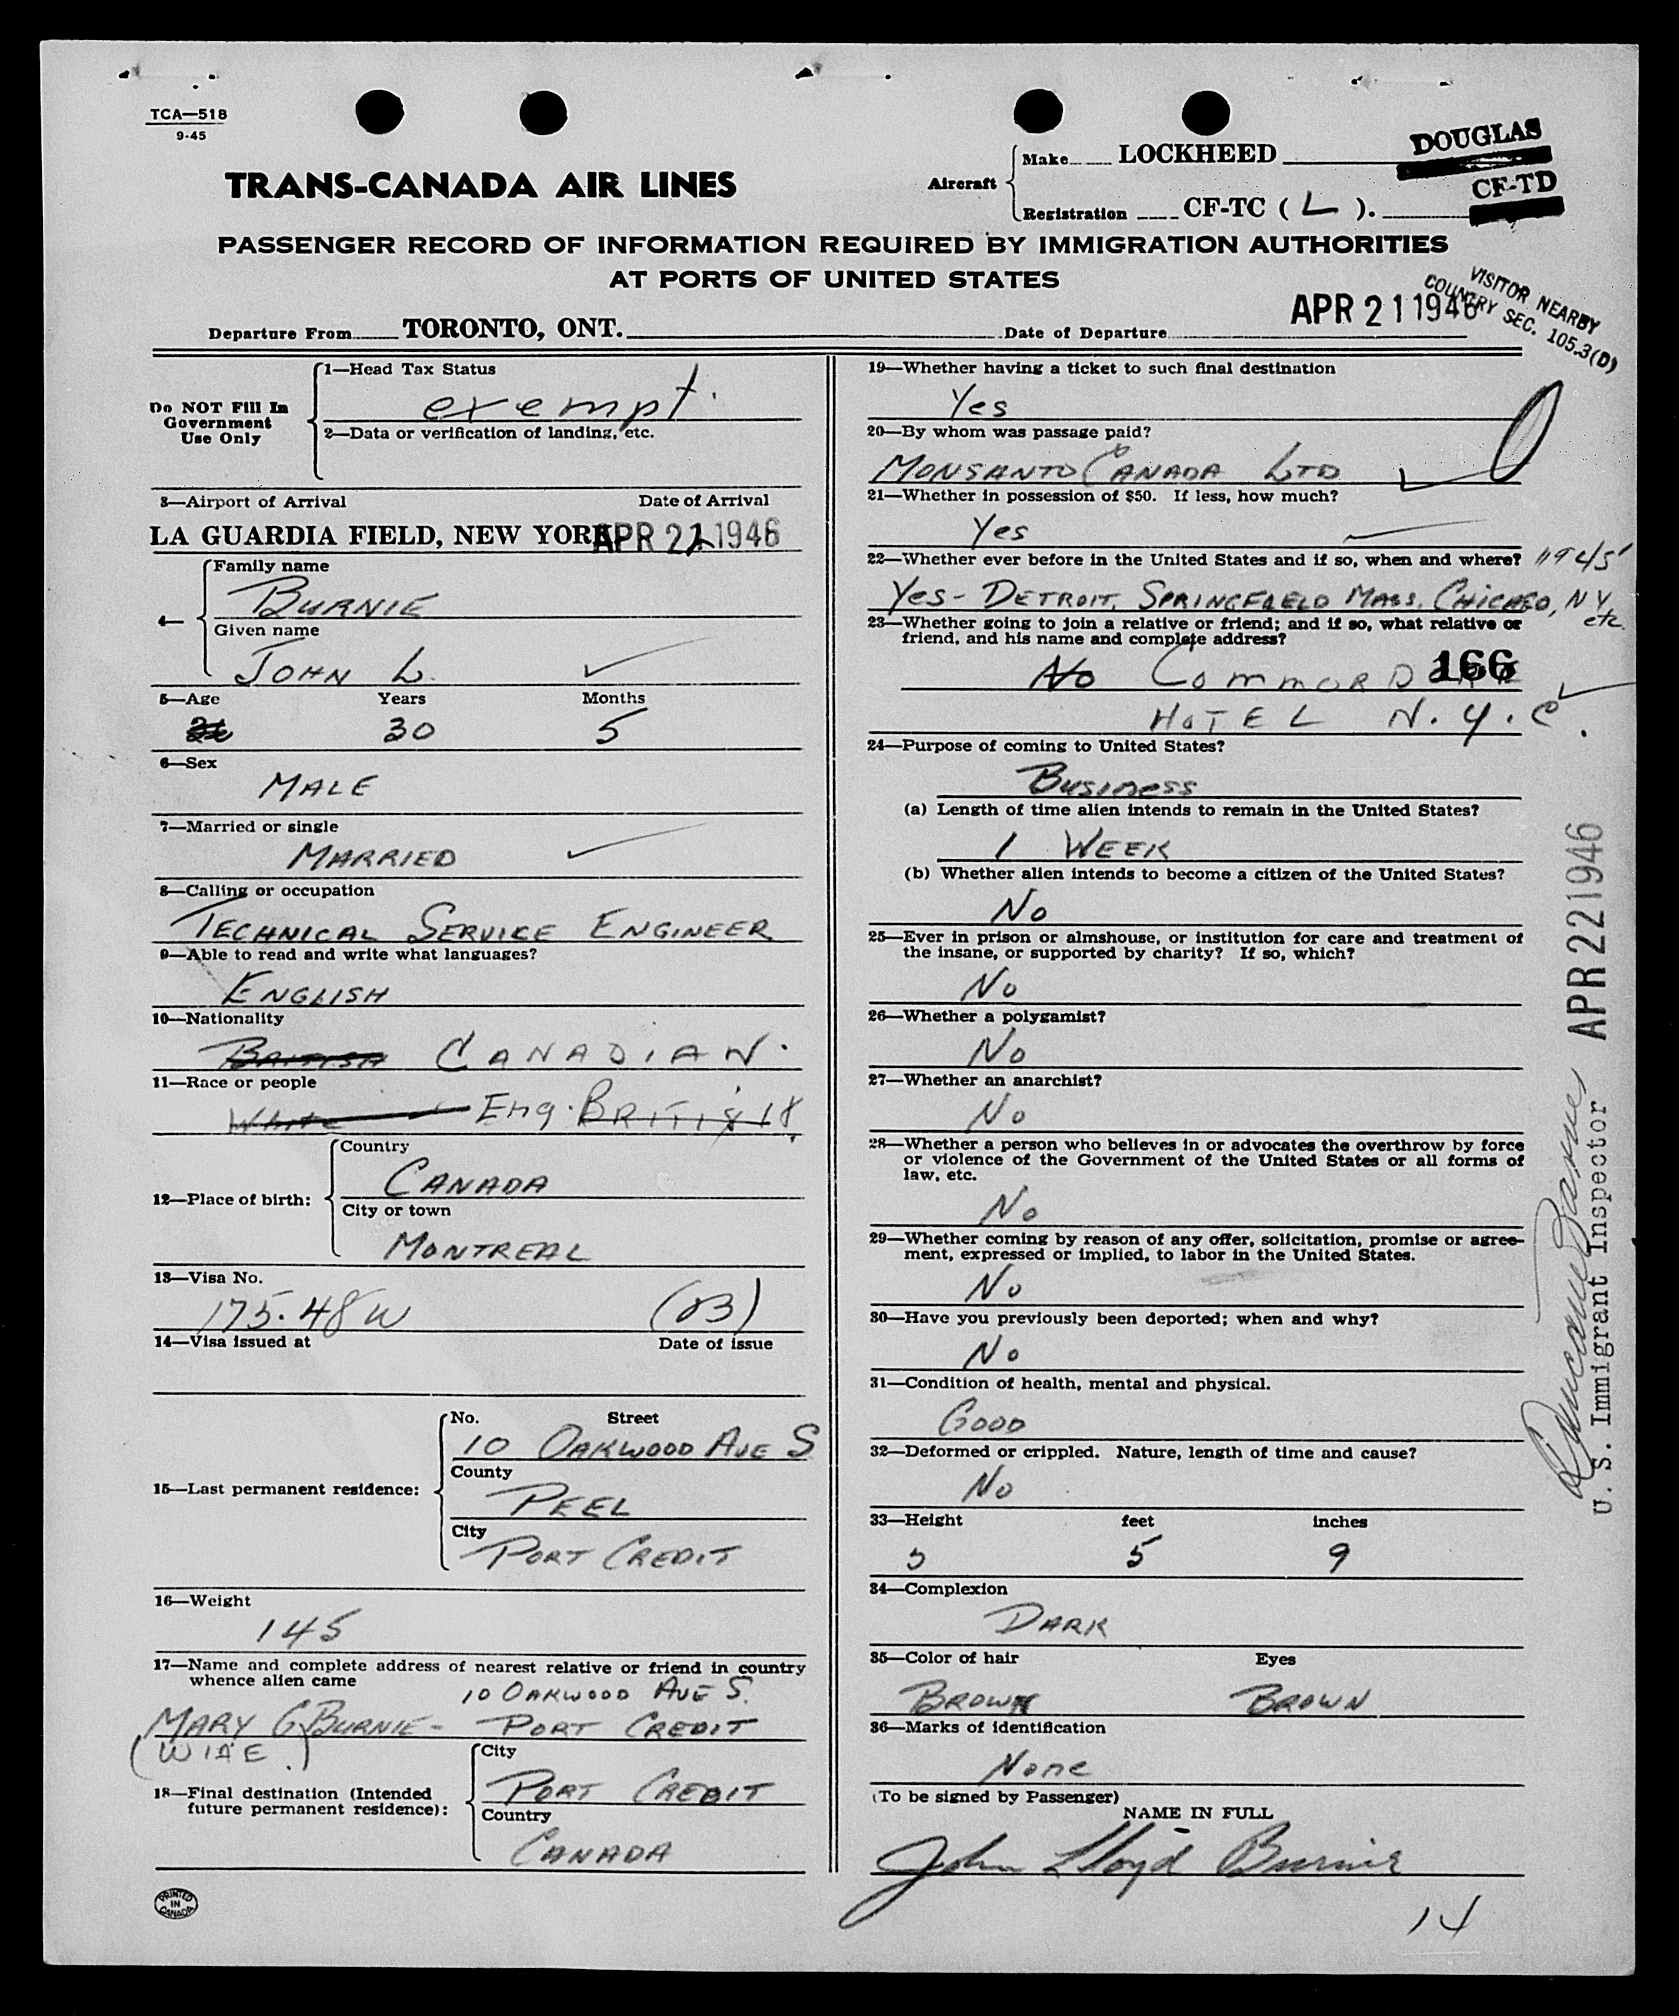 TCA—518
9-45
TRANS-CANADA AIR LINES
Aircraft
Make LOCKHEED
DOUGLAS
Registration CF-TC ( L ).
CF-TD
PASSENGER RECORD OF INFORMATION REQUIRED BY IMMIGRATION AUTHORITIES
AT PORTS OF UNITED STATES
VISITOR NEARBY
COUNTRY SEC. 105.3(D)
Departure From TORONTO, ONT.
Date of Departure APR 21 1946
Do NOT Fill In
Government
Use Only
1—Head Tax Status
exempt.
2—Data or verification of landing, etc.
3—Airport of Arrival Date of Arrival
LA GUARDIA FIELD, NEW YORK APR 21 1946
4—
Family name
BURNIE
Given name
JOHN L.
5—Age Years Months
30 5
6—Sex
MALE
7—Married or single
MARRIED
8—Calling or occupation
TECHNICAL SERVICE ENGINEER
9—Able to read and write what languages?
ENGLISH
10—Nationality
BRITISH CANADIAN.
11—Race or people
White Eng. BRITISH.
12—Place of birth:
Country
CANADA
City or town
MONTREAL
13—Visa No.
175.48W (03)
14—Visa issued at Date of issue
15—Last permanent residence:
No. Street
10 OAKWOOD AVE S
County
PEEL
City
PORT CREDIT
16—Weight
145
17—Name and complete address of nearest relative or friend in country
whence alien came
10 OAKWOOD AVE S.
MARY G BURNIE - PORT CREDIT
(WIFE.)
18—Final destination (Intended
future permanent residence):
City
PORT CREDIT
Country
CANADA
PRINTED
IN
CANADA
19—Whether having a ticket to such final destination
Yes
20—By whom was passage paid?
MONSANTO CANADA LTD
21—Whether in possession of $50. If less, how much?
Yes
22—Whether ever before in the United States and if so, when and where? 1945
Yes - DETROIT, SPRINGFIELD MASS, CHICAGO, NY
etc.
23—Whether going to join a relative or friend; and if so, what relative or
friend, and his name and complete address?
No COMMORDORE
166
HOTEL N.Y.C.
24—Purpose of coming to United States?
BUSINESS
(a) Length of time alien intends to remain in the United States?
1 WEEK
(b) Whether alien intends to become a citizen of the United States?
No
25—Ever in prison or almshouse, or institution for care and treatment of
the insane, or supported by charity? If so, which?
No
26—Whether a polygamist?
No
27—Whether an anarchist?
No
28—Whether a person who believes in or advocates the overthrow by force
or violence of the Government of the United States or all forms of
law, etc.
No
29—Whether coming by reason of any offer, solicitation, promise or agree-
ment, expressed or implied, to labor in the United States.
No
30—Have you previously been deported; when and why?
No
31—Condition of health, mental and physical.
GOOD
32—Deformed or crippled. Nature, length of time and cause?
No
33—Height feet inches
5 5 9
34—Complexion
DARK
35—Color of hair Eyes
BROWN BROWN
36—Marks of identification
None
(To be signed by Passenger)
NAME IN FULL
John Lloyd Burnie
14
APR 22 1946
U. S. Immigrant Inspector